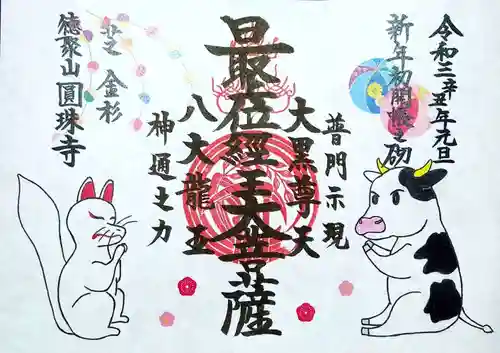 令和三辛丑年元旦
新年初開帳之砌
普門示現
大黒尊天
最位經王大菩薩
八大龍王
神通之力
芝金杉
德聚山圓珠寺